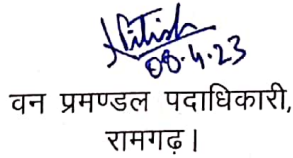 Nitish
08.4.23
वन प्रमण्डल पदाधिकारी,
रामगढ़।